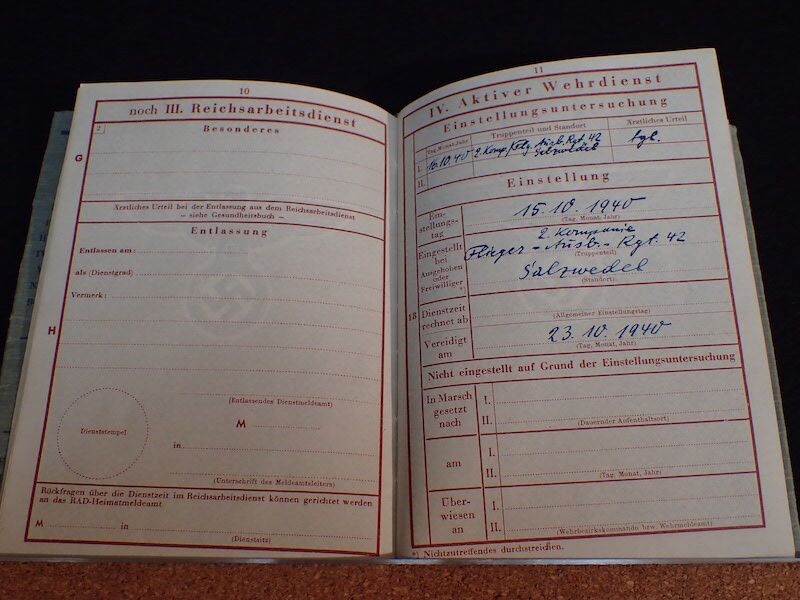 10
noch III. Reichsarbeitsdienst
2
Besonderes
G
Ärztliches Urteil bei der Entlassung aus dem Reichsarbeitsdienst
– siehe Gesundheitsbuch –
Entlassung
Entlassen am:
als (Dienstgrad):
Vermerk:
H
(Entlassendes Dienstmeldeamt)
M
Dienststempel
in
(Unterschrift des Meldeamtsleiters)
Rückfragen über die Dienstzeit im Reichsarbeitsdienst können gerichtet werden
an das RAD-Heimatmeldeamt
M in
(Dienstsitz)
11
IV. Aktiver Wehrdienst
Einstellungsuntersuchung
Tag, Monat, Jahr Truppenteil und Standort Ärztliches Urteil
I. 16.10.40 2. Komp./Flg. Ausb. Rgt. 42 tgl.
Salzwedel
II.
Einstellung
Ein-
stellungs-
tag
15.10.1940
(Tag, Monat, Jahr)
Eingestellt
bei
Ausgehoben
oder
Freiwilliger *)
2. Kompanie
Flieger-Ausb.-Rgt. 42
(Truppenteil)
Salzwedel
(Standort)
18 Dienstzeit
rechnet ab
(Allgemeiner Einstellungstag)
Vereidigt
am
23.10.1940
(Tag, Monat, Jahr)
Nicht eingestellt auf Grund der Einstellungsuntersuchung
In Marsch
gesetzt
nach
I.
II.
(Dauernder Aufenthaltsort)
am
I.
II.
(Tag, Monat, Jahr)
Über-
wiesen
an
I.
II.
(Wehrbezirkskommando bzw. Wehrmeldeamt)
*) Nichtzutreffendes durchstreichen.